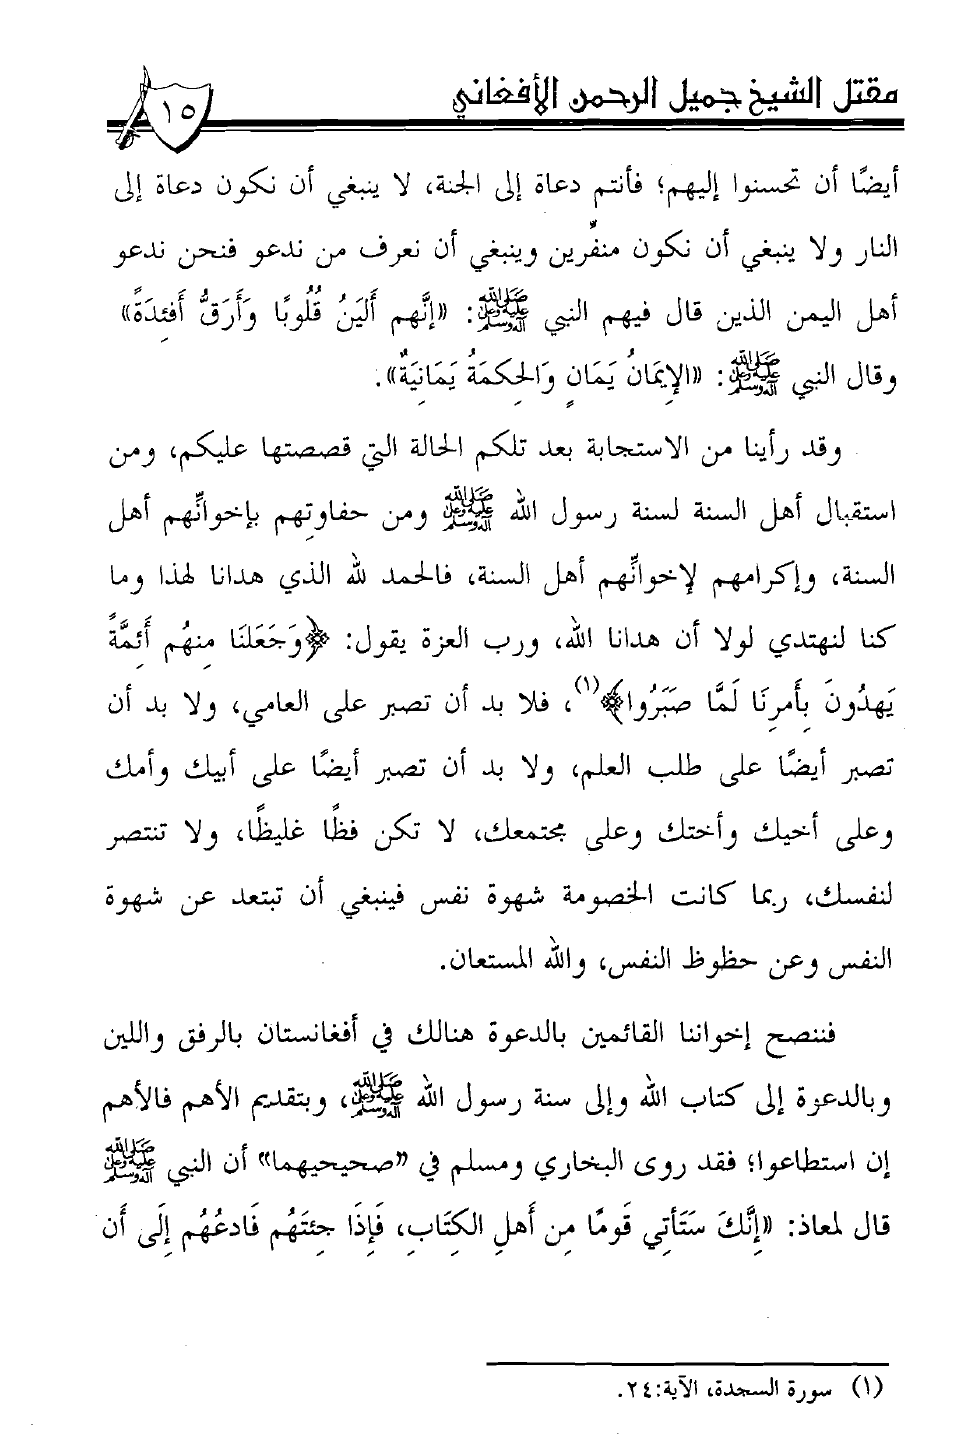 مقتل الشيخ جميل الرحمن الأفغاني
١٥
أيضًا أن تحسنوا إليهم؛ فأنتم دعاة إلى الجنة، لا ينبغي أن نكون دعاة إلى
النار ولا ينبغي أن نكون منفّرين وينبغي أن نعرف من ندعو فنحن ندعو
أهل اليمن الذين قال فيهم النبي ﷺ: «إنَّهم أَليَنُ قُلُوبًا وَأَرَقُّ أَفئِدَةً»
وقال النبي ﷺ: «الإِيمَانُ يَمَانٍ وَالحِكمَةُ يَمَانِيَةٌ».
وقد رأينا من الاستجابة بعد تلكم الحالة التي قصصتها عليكم، ومن
استقبال أهل السنة لسنة رسول الله ﷺ ومن حفاوتهم بإخوانِّهم أهل
السنة، وإكرامهم لإخوانِّهم أهل السنة، فالحمد لله الذي هدانا لهذا وما
كنا لنهتدي لولا أن هدانا الله، ورب العزة يقول: ﴿وَجَعَلنَا مِنهُم أَئِمَّةً
يَهدُونَ بِأَمرِنَا لَمَّا صَبَرُوا﴾(١)، فلا بد أن تصبر على العامي، ولا بد أن
تصبر أيضًا على طلب العلم، ولا بد أن تصبر أيضًا على أبيك وأمك
وعلى أخيك وأختك وعلى مجتمعك، لا تكن فظًا غليظًا، ولا تنتصر
لنفسك، ربما كانت الخصومة شهوة نفس فينبغي أن تبتعد عن شهوة
النفس وعن حظوظ النفس، والله المستعان.
فننصح إخواننا القائمين بالدعوة هنالك في أفغانستان بالرفق واللين
وبالدعوة إلى كتاب الله وإلى سنة رسول الله ﷺ، وبتقديم الأهم فالأهم
إن استطاعوا؛ فقد روى البخاري ومسلم في «صحيحيهما» أن النبي ﷺ
قال لمعاذ: «إِنَّكَ سَتَأتِي قَومًا مِن أَهلِ الكِتَابِ، فَإِذَا جِئتَهُم فَادعُهُم إِلَى أَن
(١) سورة السجدة، الآية:٢٤.